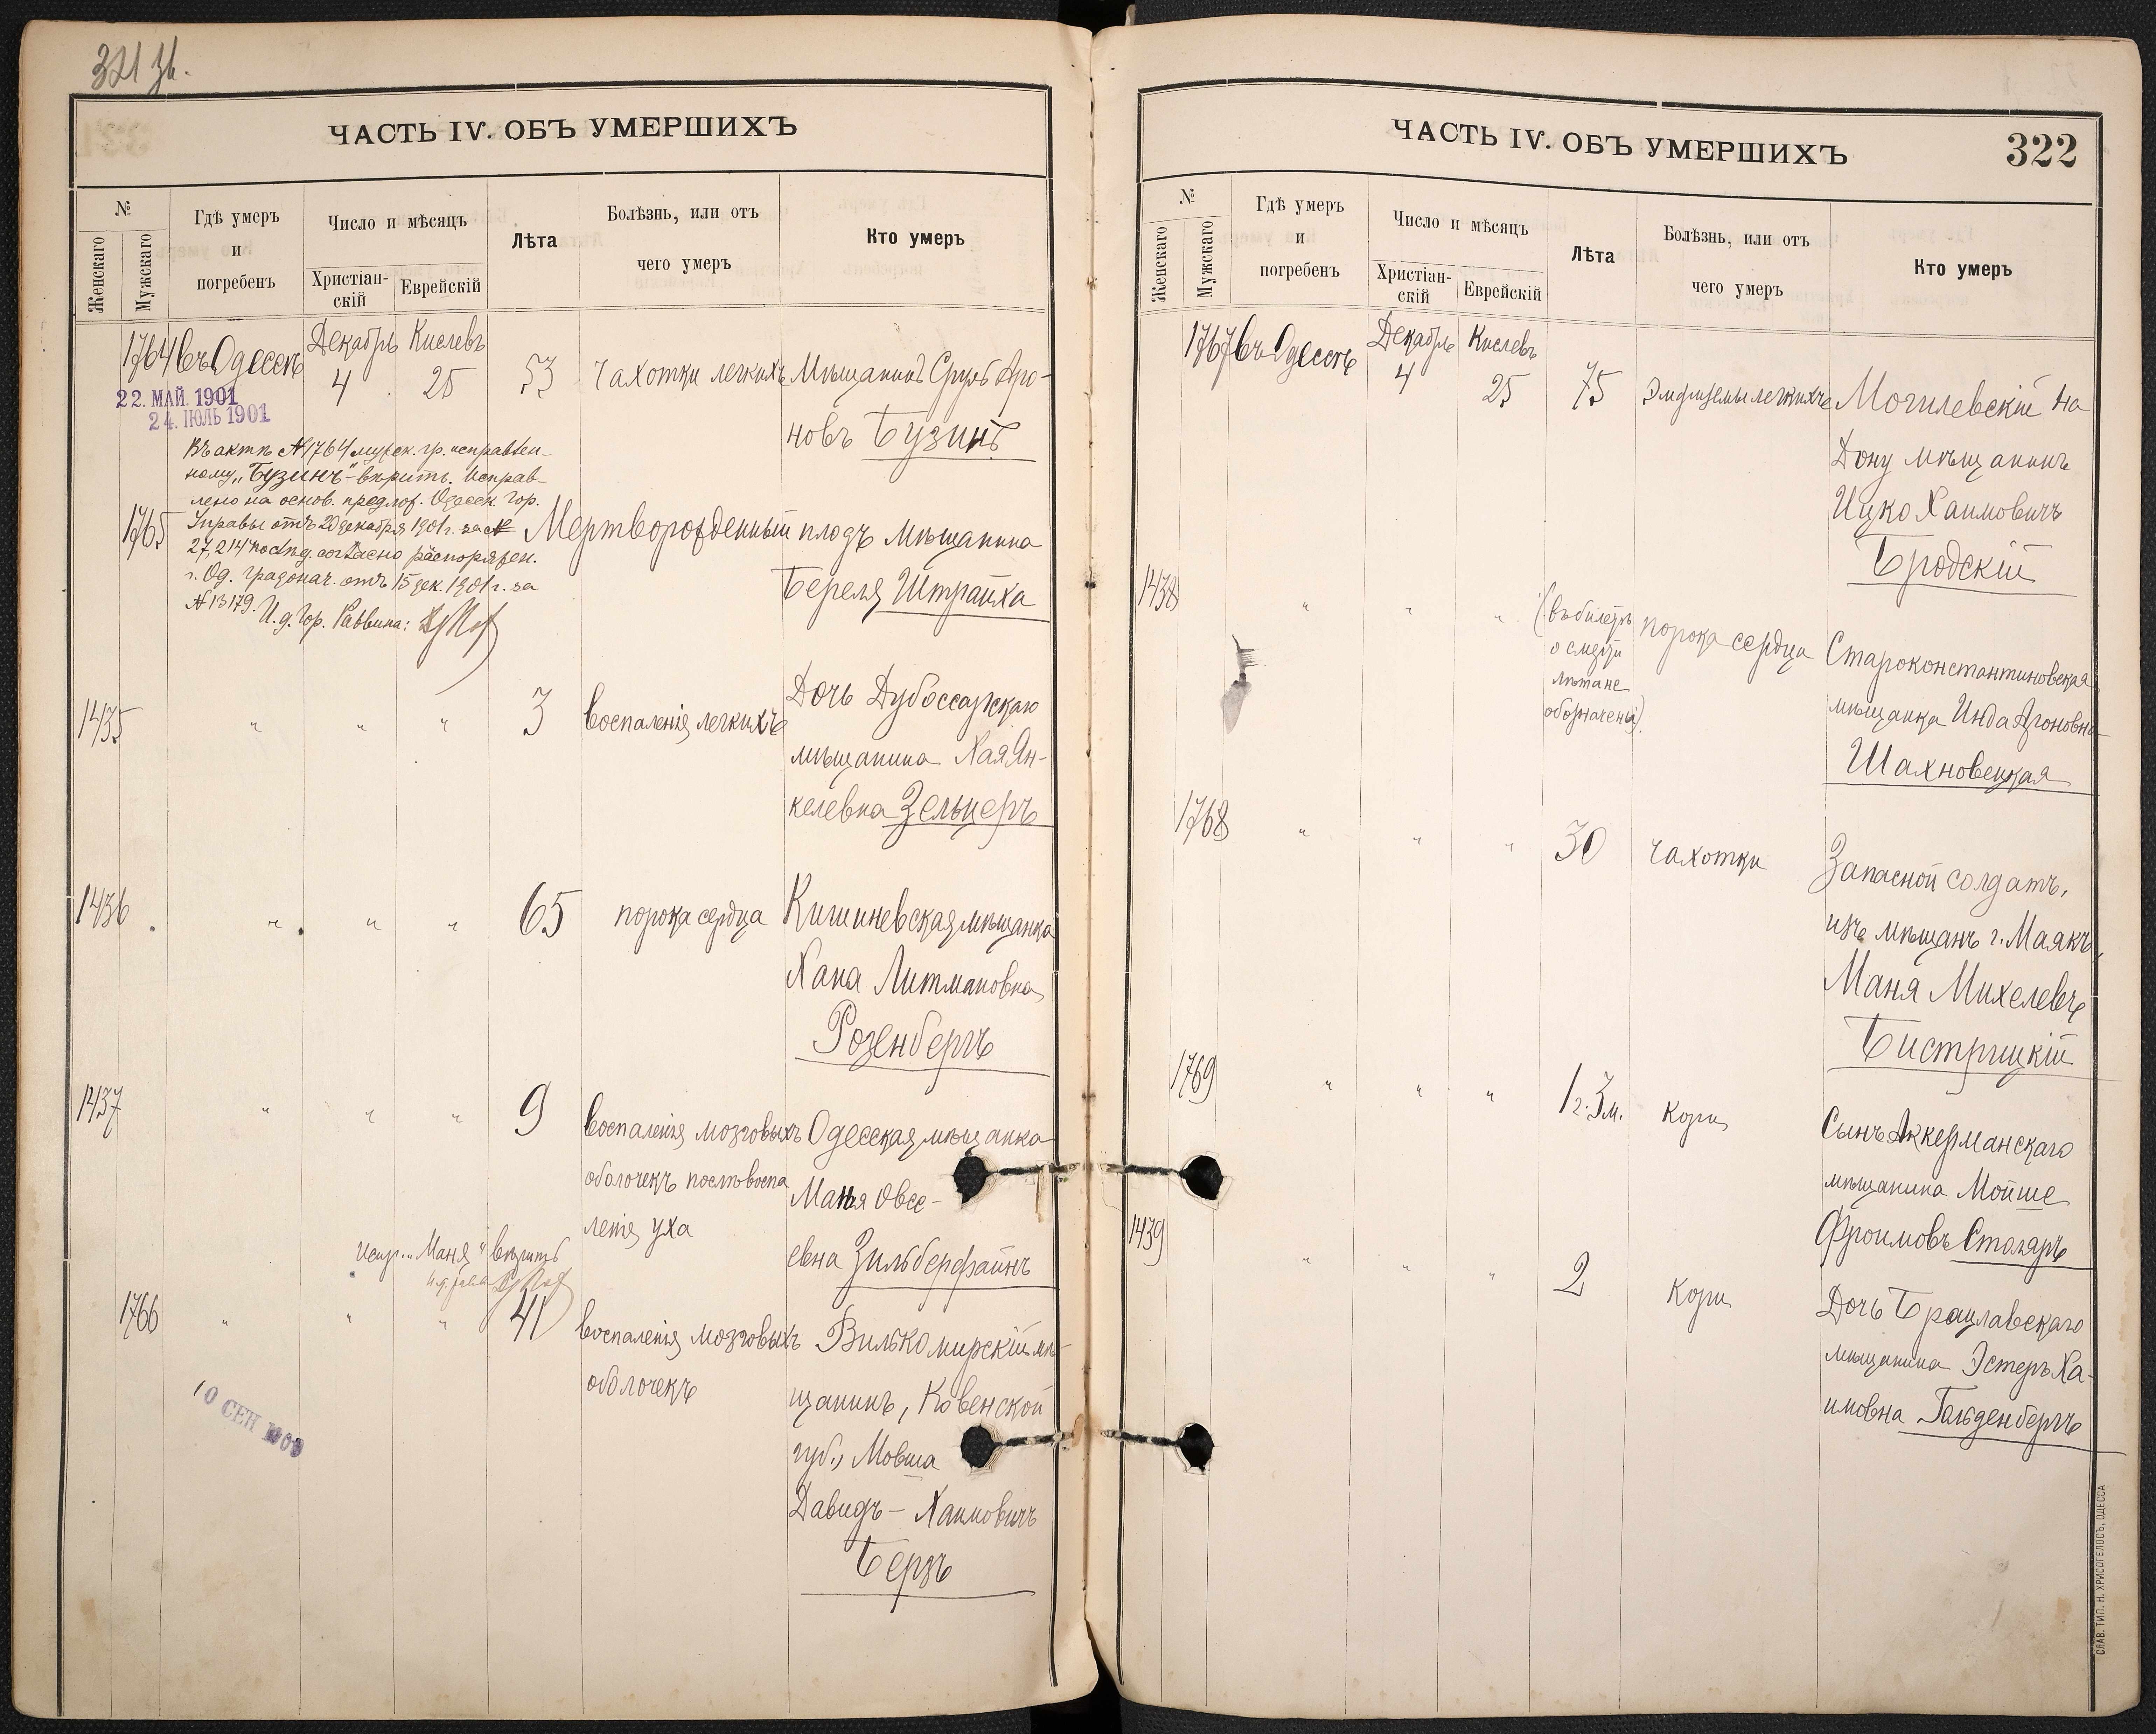 321 зв.
ЧАСТЬ IV. ОБЪ УМЕРШИХЪ
№
Женскаго
Мужскаго
Гдѣ умеръ
и
погребенъ
Число и мѣсяцъ
Христіан-
скій
Еврейскій
Лѣта
Болѣзнь, или отъ
чего умеръ
Кто умеръ
1764 въ Одессѣ Декабрь 4 Кислевъ 25 53 Чахотки легкихъ Мѣщанинъ Сруль Аро-
новъ Бузинъ
22. МАЙ. 1901
24. ІЮЛЬ 1901
Въ актѣ №1764 мужск. гр. исправлен-
ному „Бузинъ"-вѣрить. Исправ-
лено на основ. предлож. Одесск. Гор.
Управы отъ 20 декабря 1901 г. за №
27,214 послѣд. согласно распоряжен.
г. Од. Градонач. отъ 15 дек. 1901 г. за
№ 13179. И. д. Гор. Раввина:
1765 Мертворожденный плодъ мѣщанина
Береля Штрайха
1435 " " " 3 воспаленія легкихъ Дочь Дубоссарскаго
мѣщанина Хая Ян-
келевна Зельцеръ
1436 " " " 65 порока сердца Кишиневская мѣщанка
Хана Литмановна
Розенбергъ
1437 " " " 9 воспаленія мозговыхъ Одесская мѣщанка
оболочекъ послѣ воспа Маня Овсе-
ленія уха
евна Зильберфайнъ
Испр. „Маня" вѣрить
1766 " " " 41 воспаленія мозговыхъ Вилькомирскій мѣ-
оболочекъ щанинъ, Ковенской
губ., Мовша
Давидъ - Хаимовичъ
Берзъ
10 СЕН 1909
ЧАСТЬ IV. ОБЪ УМЕРШИХЪ
322
№
Женскаго
Мужскаго
Гдѣ умеръ
и
погребенъ
Число и мѣсяцъ
Христіан-
скій
Еврейскій
Лѣта
Болѣзнь, или отъ
чего умеръ
Кто умеръ
1767 въ Одессѣ Декабрь 4 Кислевъ 25 75 Эмфиземы легкихъ Могилевскій на
Дону мѣщанинъ
Ицко Хаимовичъ
Бродскій
1438 " " " (въ билетѣ порока сердца Староконстантиновская
о смерти
лѣта не
обозначены). мѣщанка Инда Ароновна
Шахновецкая
1768 " " " 30 чахотки Запасной солдатъ,
изъ мѣщанъ г. Маякъ,
Маня Михелевъ
Бистрицкій
1769 " " " 1 г. 3 м. кори Сынъ Аккерманскаго
мѣщанина Мойше
Фроимовъ Столяръ
1439 " " " 2 кори Дочь Брацлавскаго
мѣщанина Эстеръ Ха-
имовна Гольденбергъ
СЛАВ. ТИП. Н. ХРИСОГЕЛОСЪ, ОДЕССА